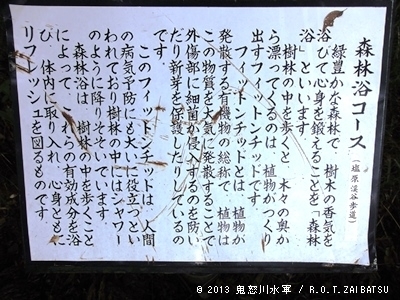 森林浴コース(塩原渓谷歩道)
緑豊かな森林で、樹木の香気を
浴びて心身を鍛えることを「森林
浴」といいます。
樹林の中を歩くと、木々の奥か
ら漂ってくるのは、植物がつくり
出すフィットンチッドです。
フィットンチッドとは、植物が
発散する有機物の総称で、植物は
この物質を大気に発散することで
外傷部に細菌が侵入するのを防い
だり新芽を保護したりしているの
です。
このフィットンチッドは、人間
の病気予防にも大いに役立つとい
われており樹林の中ではシャワー
のように降りそそいでいます。
森林浴は、樹林の中を歩くこと
によって、これらの有効成分を浴
び、体内に取り入れ、心身ともに
リフレッシュを図るものです。
© 2013 鬼怒川水軍 / R.O.T.ZAIBATSU